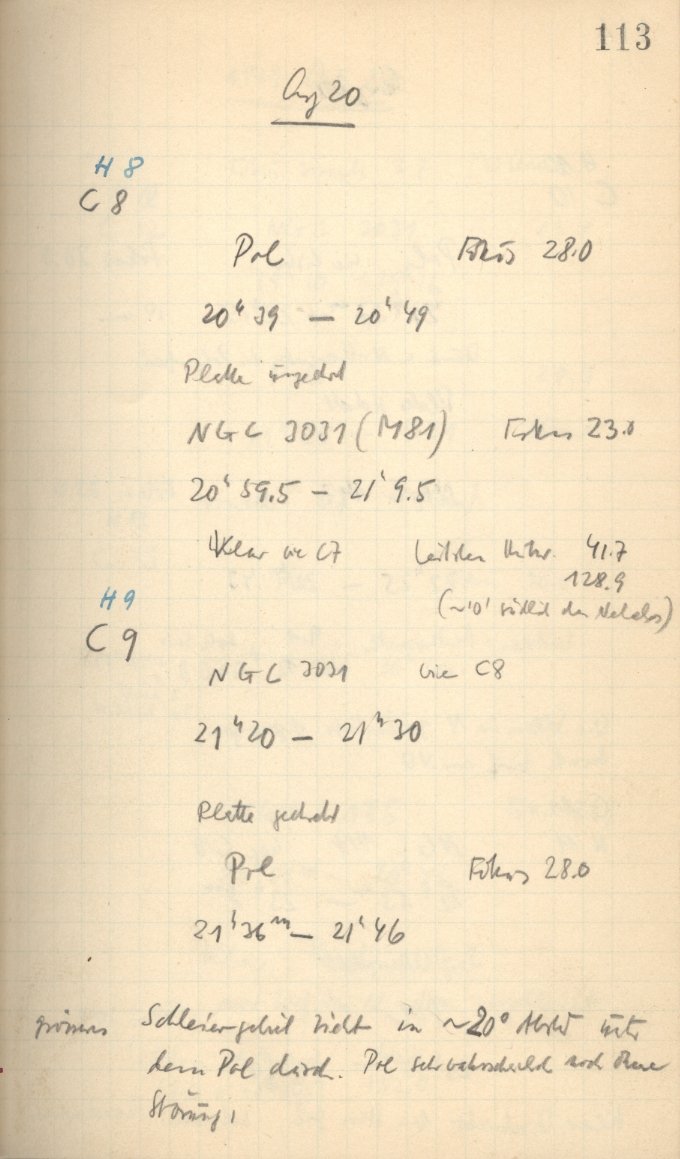 113
Aug 20
H 8
C 8
Pol Fokus 28.0
20ʰ 39 — 20ʰ 49
Platte umgedreht
NGC 3031 (M81) Fokus 23.0
20ʰ 59.5 — 21ʰ 9.5
Klar wie C7 41.7
128.9
(~10' südlich des Nebels)
H 9
C 9
NGC 3031 wie C8
21ʰ 20 — 21ʰ 30
Platte gedreht
Pol Fokus 28.0
21ʰ 36ᵐ — 21ʰ 46
grösseres Schleiergebiet zieht in ~20° Abstd unter
dem Pol durch. Pol sehr wahrscheinlich noch ohne
Störung!